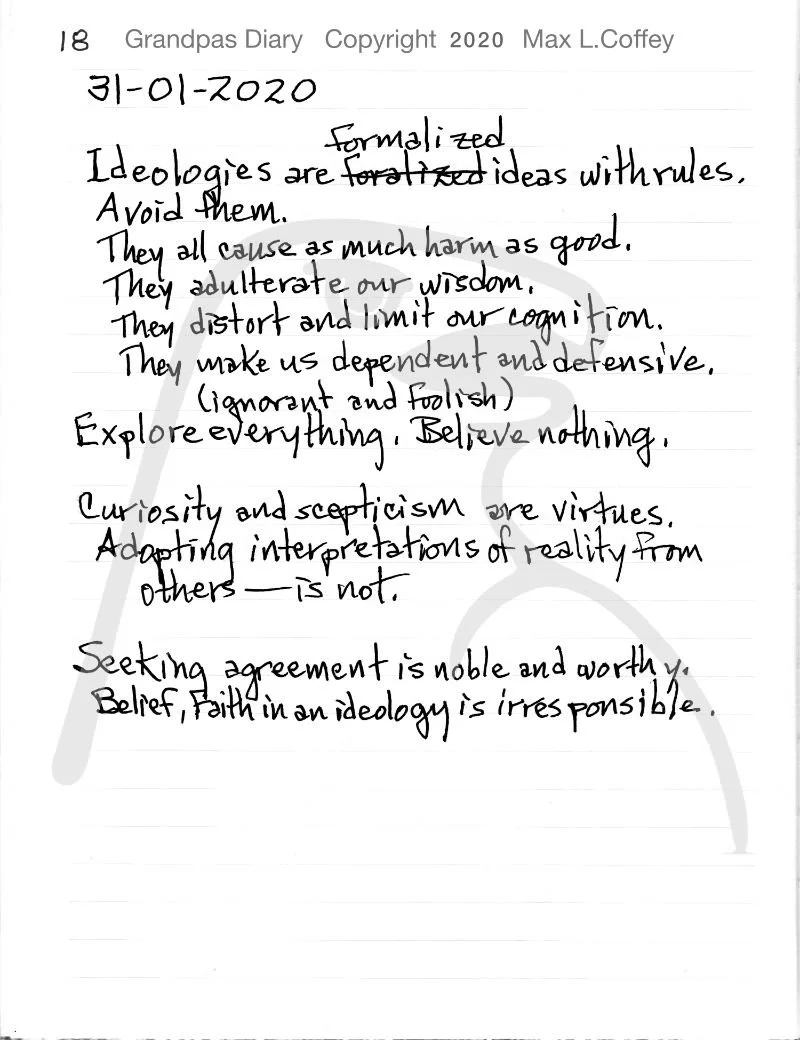 18 Grandpas Diary Copyright 2020 Max L.Coffey
31-01-2020
formalized
Ideologies are foralized ideas with rules.
Avoid them.
They all cause as much harm as good.
They adulterate our wisdom.
They distort and limit our cognition.
They make us dependent and defensive.
(ignorant and foolish)
Explore everything. Believe nothing.
Curiosity and scepticism are virtues.
Adopting interpretations of reality from
others — is not.
Seeking agreement is noble and worthy.
Belief, Faith in an ideology is irresponsible.